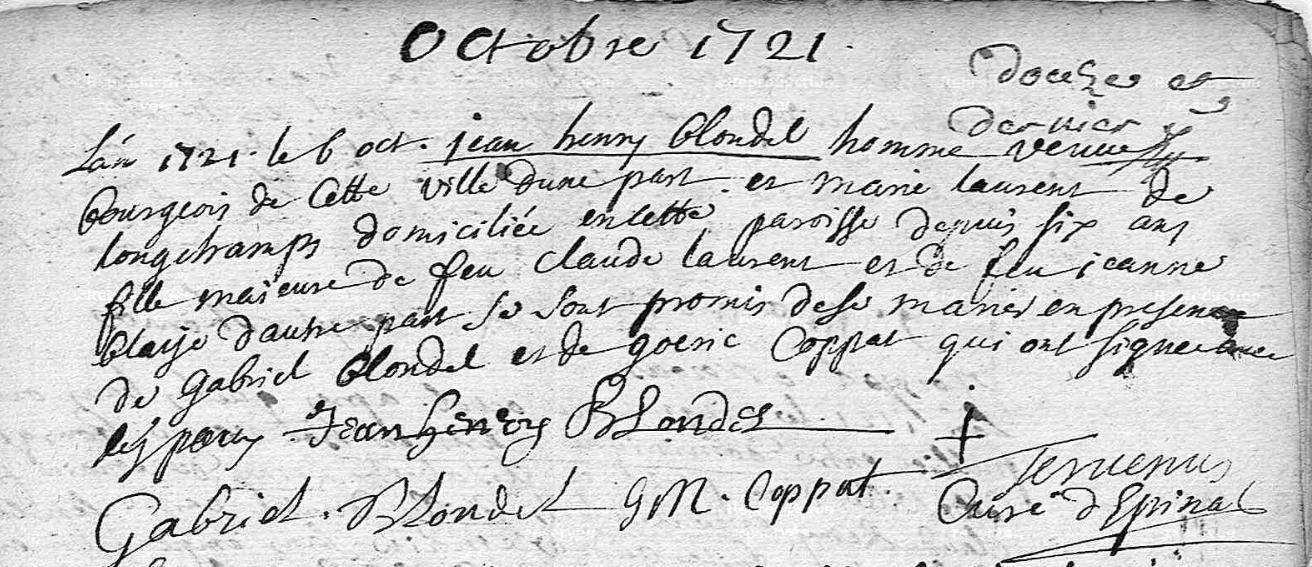 Octobre 1721
douze et
dernier
Lan 1721. le 6 oct. jean henry blondel homme
bourgeois de Cette ville dune part. et marie laurent de
longchamps domiciliée en Cette paroisse depuis six ans
fille majeure de feu claude laurent et de feu jeanne
blaise dautre part se sont promis de se marier en presence
de gabriel blondel et de goeric Coppat qui ont signe avec
les party Jean henry BLondel
Gabriel. Blondel GM. Coppat.
Curé dEpinal